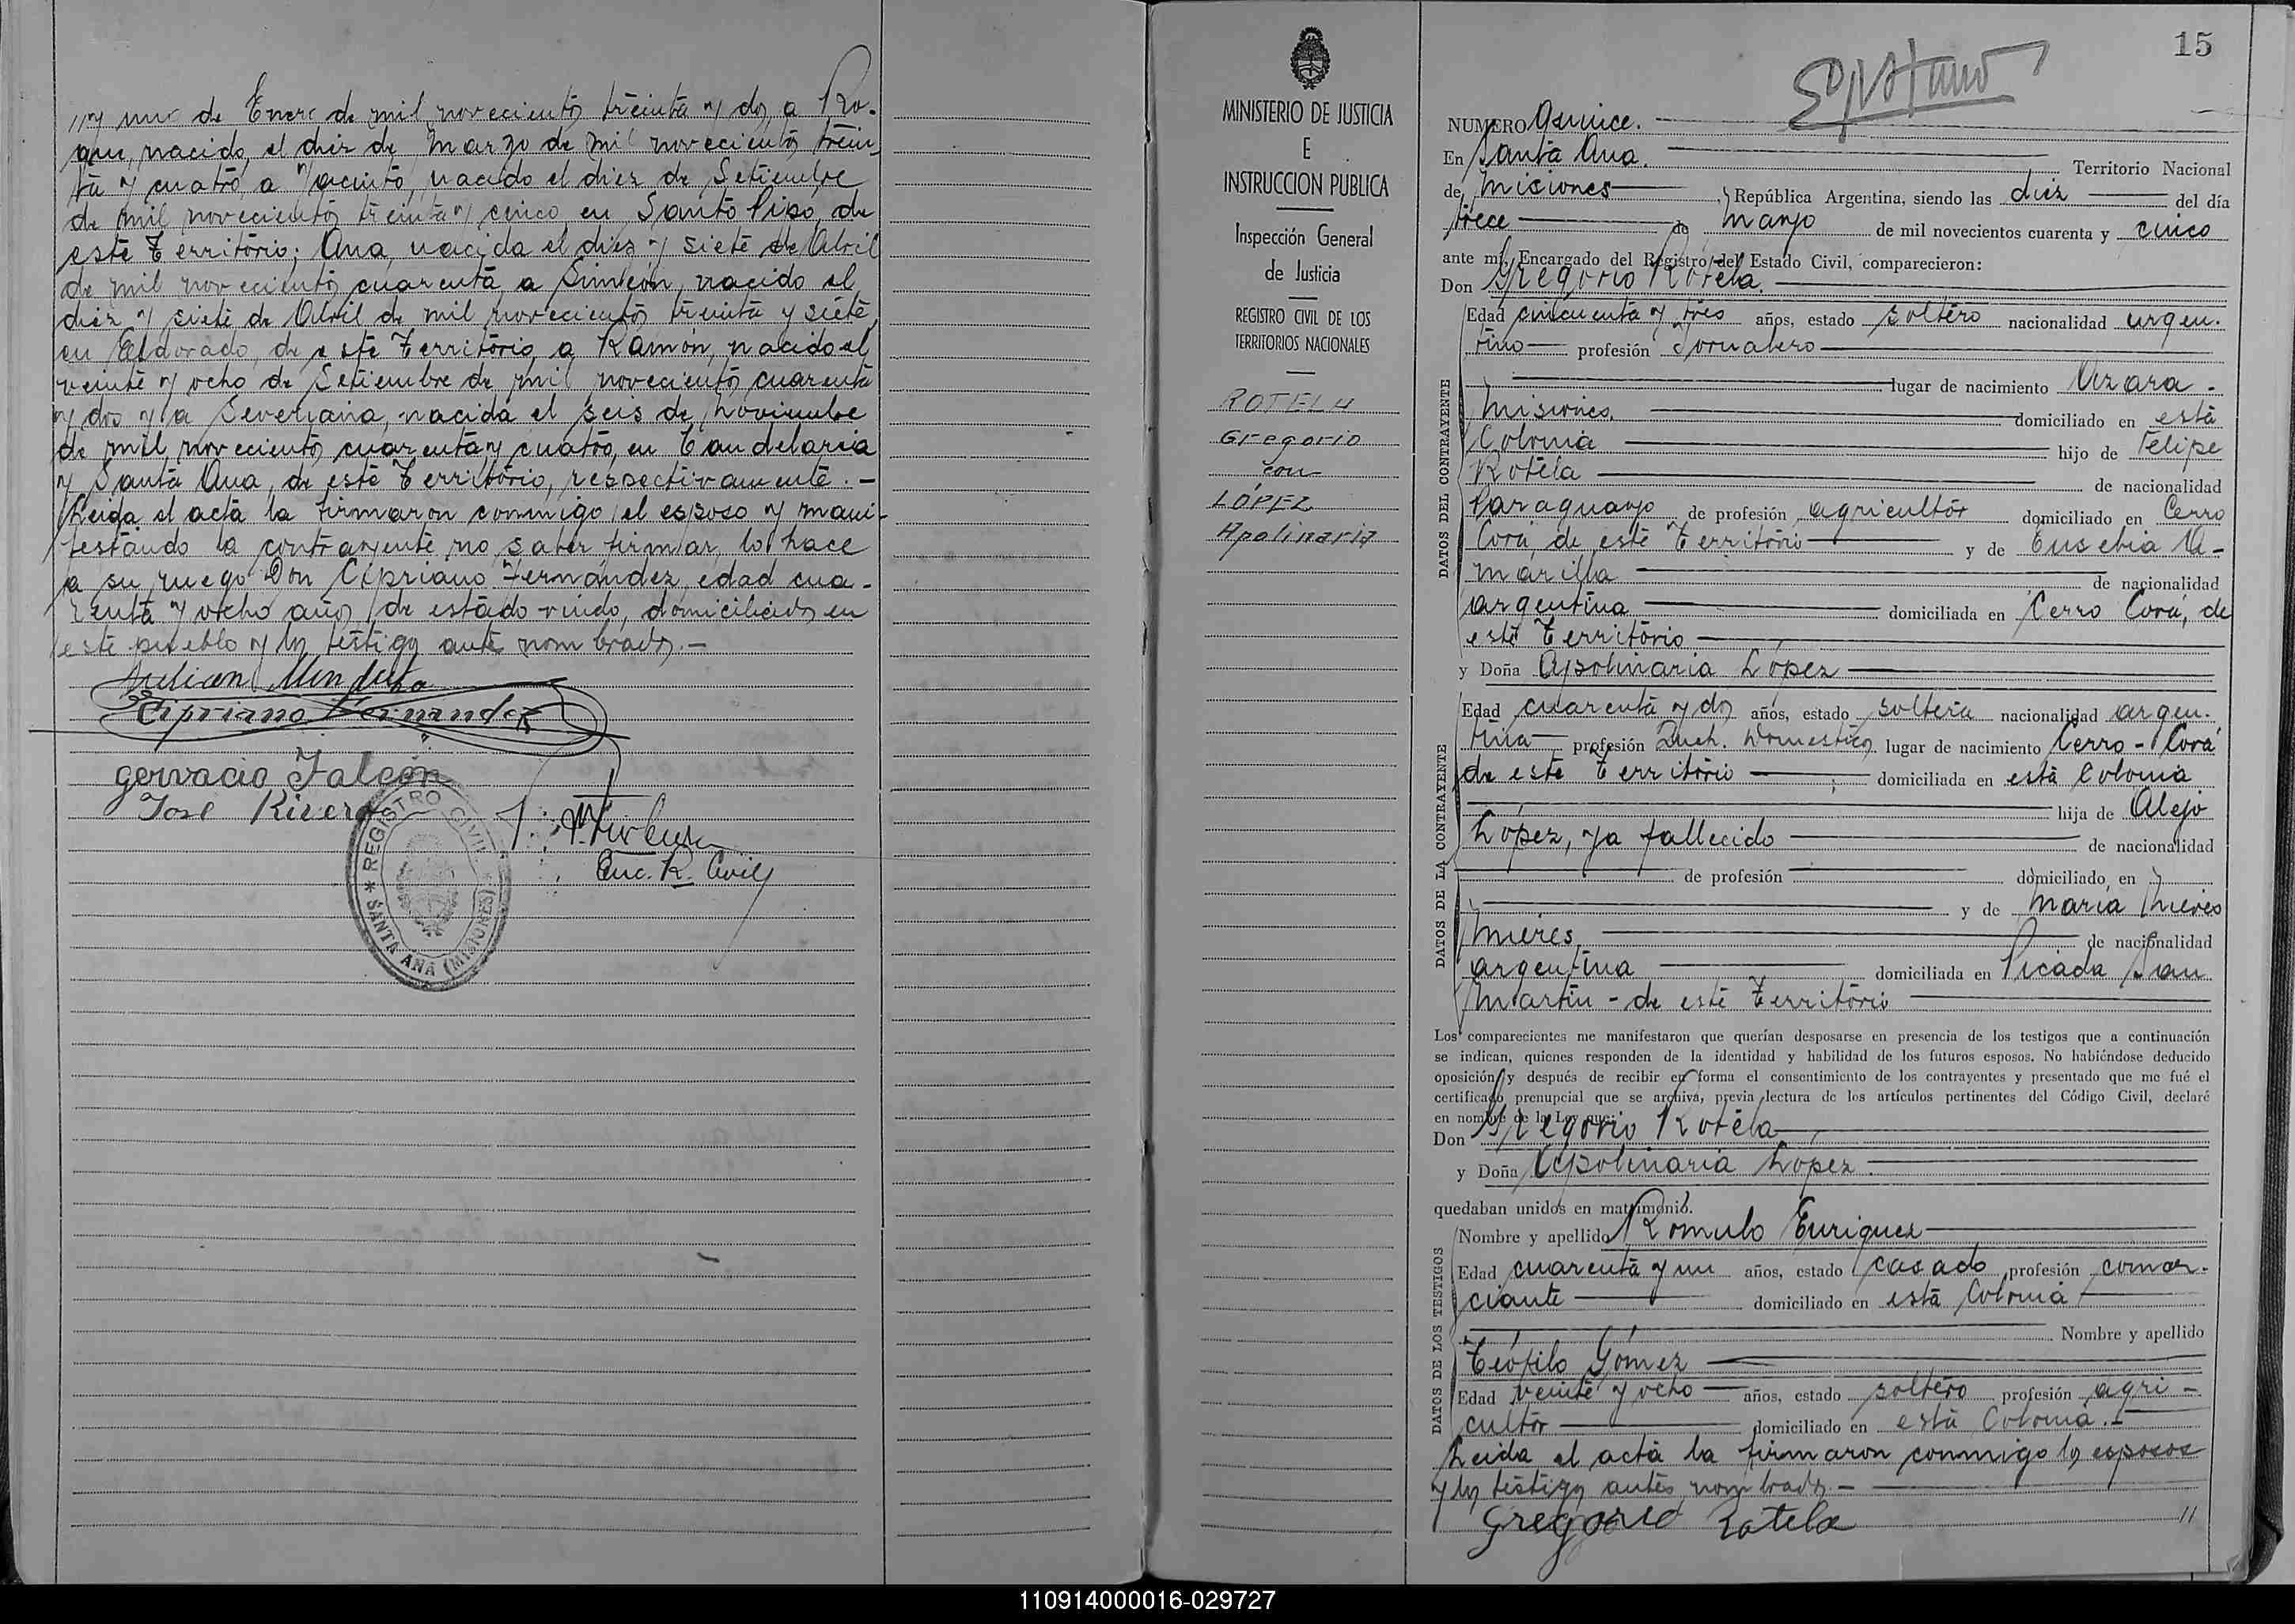 //y uno de Enero de mil novecientos treinta y dos, a Ro-
que, nacido el diez de Marzo de mil novecientos trein-
ta y cuatro, a Jacinto, nacido el diez de Setiembre
de mil novecientos treinta y cinco en Santo Pipó, de
este Territorio; Ana, nacida el diez y siete de Abril
de mil novecientos cuarenta a Simeón, nacido el
diez y siete de Abril de mil novecientos treinta y siete
en Eldorado, de este Territorio, a Ramón, nacido el
veinte y ocho de Setiembre de mil novecientos cuarenta
y dos y a Severiana, nacida el seis de Noviembre
de mil novecientos cuarenta y cuatro, en Candelaria
y Santa Ana, de este Territorio, respectivamente.-
Leida el acta la firmaron conmigo el esposo y mani-
festando la contrayente no saber firmar, lo hace
a su ruego Don Cipriano Fernández edad cua-
renta y ocho años, de estado viudo, domiciliado en
este pueblo y los testigos ante nombrados.-
Cipriano Fernandez
Gervacio Falcón
José Rivero
Enc. R. Civil
* REGISTRO CIVIL *
SANTA ANA (MISIONES)
MINISTERIO DE JUSTICIA
E
INSTRUCCION PUBLICA
Inspección General
de Justicia
REGISTRO CIVIL DE LOS
TERRITORIOS NACIONALES
ROTELA
Gregorio
con
LÓPEZ
Apolinaria
15
NUMERO Quince.
En Santa Ana. Territorio Nacional
de Misiones, República Argentina, siendo las diez del día
trece de Marzo de mil novecientos cuarenta y cinco
ante mí, Encargado del Registro del Estado Civil, comparecieron:
Don Gregorio Rotela.
DATOS DEL CONTRAYENTE
Edad cincuenta y tres años, estado soltero nacionalidad argen-
tino profesión Jornalero
lugar de nacimiento Azara -
Misiones. domiciliado en esta
Colonia hijo de Felipe
Rotela de nacionalidad
Paraguayo de profesión agricultor domiciliado en Cerro
Corá, de este Territorio y de Eusebia A-
marilla de nacionalidad
argentina domiciliada en Cerro Corá, de
este Territorio
y Doña Apolinaria López
DATOS DE LA CONTRAYENTE
Edad cuarenta y dos años, estado soltera nacionalidad argen-
tina profesión Queh. Domesticos lugar de nacimiento Cerro-Corá
de este Territorio domiciliada en esta Colonia
hija de Alejo
López, ya fallecido de nacionalidad
de profesión domiciliado en
y de María Nieves
Mieres de nacionalidad
argentina domiciliada en Picada San
Martín - de este Territorio
Los comparecientes me manifestaron que querían desposarse en presencia de los testigos que a continuación
se indican, quienes responden de la identidad y habilidad de los futuros esposos. No habiéndose deducido
oposición y después de recibir en forma el consentimiento de los contrayentes y presentado que me fué el
certificado prenupcial que se archiva, previa lectura de los artículos pertinentes del Código Civil, declaré
en nombre de la Ley que:
Don Gregorio Rotela
y Doña Apolinaria López
quedaban unidos en matrimonio.
DATOS DE LOS TESTIGOS
Nombre y apellido Romulo Enriquez
Edad cuarenta y un años, estado casado profesión comer-
ciante domiciliado en esta Colonia
Nombre y apellido
Teófilo Gómez
Edad veinte y ocho años, estado soltero profesión agri-
cultor domiciliado en esta Colonia.-
Leida el acta la firmaron conmigo los esposos
y los testigos antes nombrados.-
Gregorio Rotela
//
110914000016-029727